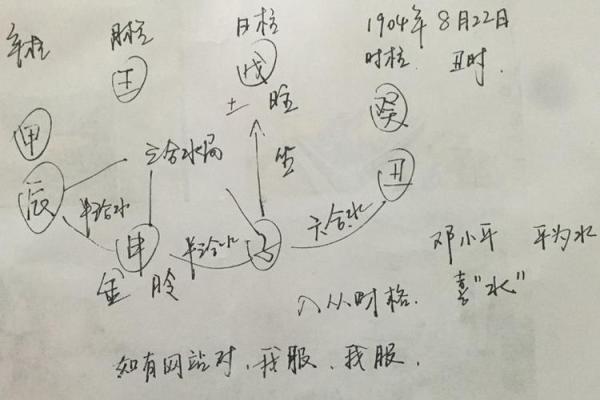 年柱 月柱 日柱 1904年8月22日
时柱 丑时.
壬 戊
土 旺 癸
甲
三合水局 坐
辰 丑
半合水 六合水
申 半合水 子
邓小平 平为水
金
入从时格. 喜"水"
如有网站对、我服、我服.